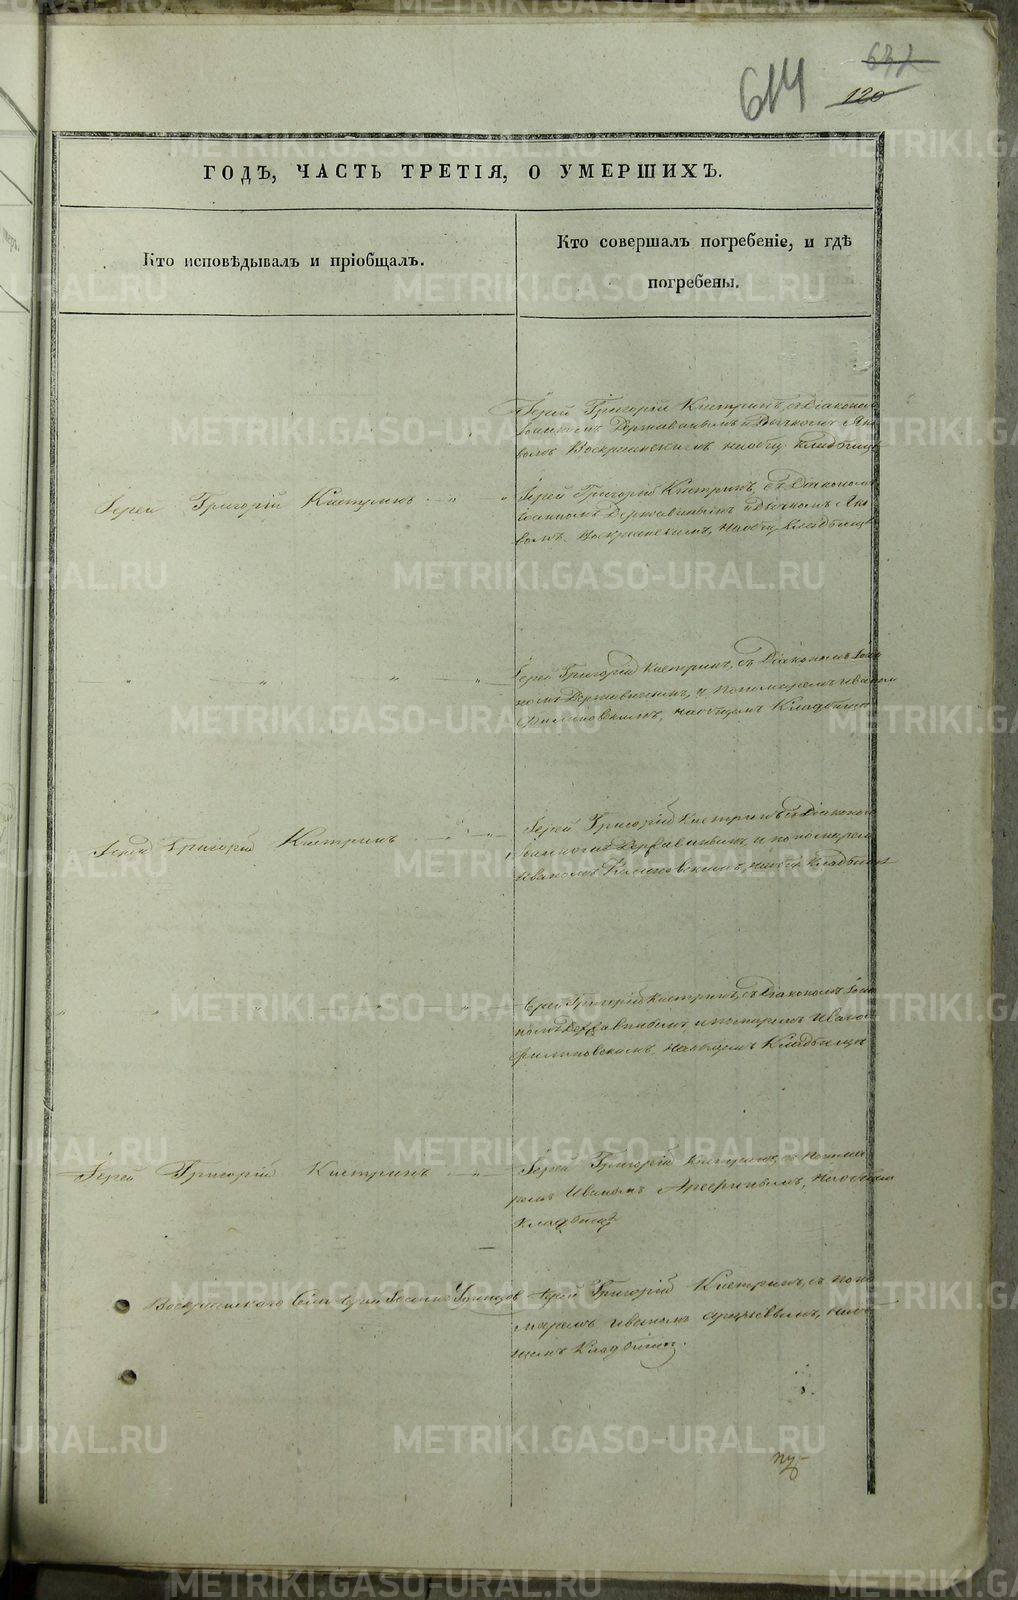 614
632
120
ГОДЪ, ЧАСТЬ ТРЕТІЯ, О УМЕРШИХЪ.
Кто исповѣдывалъ и пріобщалъ.
Кто совершалъ погребеніе, и гдѣ
погребены.
Іерей Григорій Кистринъ, съ Діакономъ
Державинымъ и Дьячкомъ Яко
вомъ Воскресенскимъ на общ. Кладбищѣ
Іерей Григорій Кистринъ
Іерей Григорій Кистринъ, съ Діакономъ
Іоанномъ Державинымъ и Дьячкомъ Яко
вомъ Воскресенскимъ, на общ. Кладбищѣ
Іерей Григорій Кистринъ, съ Діакономъ Іоан
номъ Державинымъ, и пономаремъ Иваномъ
Филиповскимъ, на общемъ Кладбищѣ
Іерей Григорій Кистринъ
Іерей Григорій Кистринъ съ Діакономъ
Іоанномъ Державинымъ и пономаремъ
Иваномъ Филиповскимъ, на общ. Кладбищѣ
Іерей Григорій Кистринъ, съ Діакономъ Іоан
номъ Державинымъ, и Иваномъ
Филиповскимъ, на общемъ Кладбищѣ
Іерей Григорій Кистринъ
Іерей Григорій Кистринъ, съ понома
ремъ Иваномъ на общемъ
Кладбищѣ
Воскресенского Села Іерей
Іерей Григорій Кистринъ, съ поно
маремъ Иваномъ на об
щемъ Кладбищѣ.
METRIKI.GASO-URAL.RU